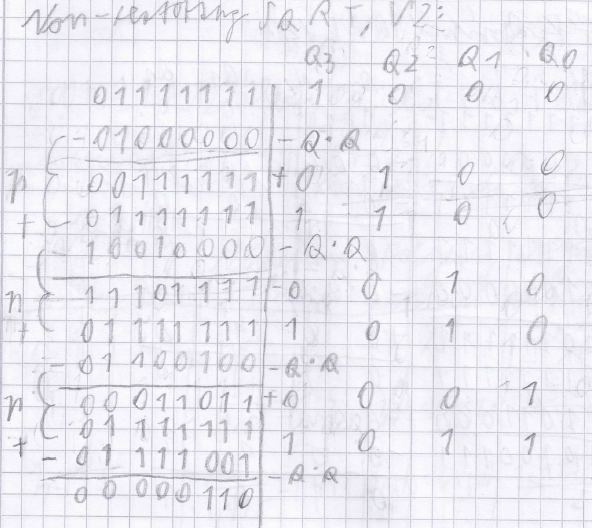 Non-restoring SQRT, V2:
Q3 Q2 Q1 Q0
01111111 1 0 0 0
- 01000000 - Q·Q
00111111 + 0 1 0 0
01111111 1 1 0 0
- 10010000 - Q·Q
11101111 - 0 0 1 0
01111111 1 0 1 0
- 01100100 - Q·Q
00011011 + 0 0 0 1
01111111 1 0 1 1
- 01111001 - Q·Q
00000110